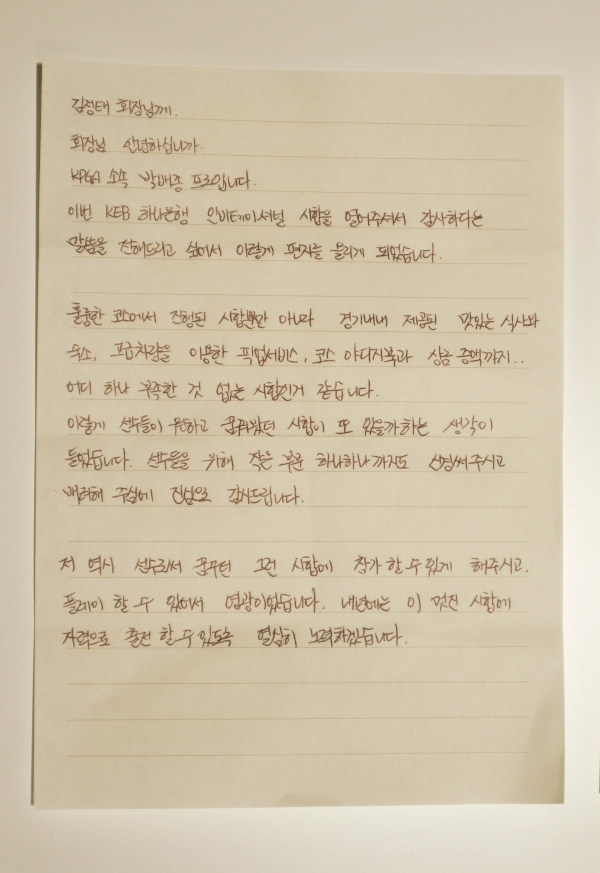 김정태 회장님께.
회장님 안녕하십니까.
KPGA 소속 박배종 프로입니다.
이번 KEB 하나은행 인비테이셔널 시합을 열어주셔서 감사하다는
말씀을 전해드리고 싶어서 이렇게 편지를 올리게 되었습니다.
훌륭한 코스에서 진행된 시합뿐만 아니라 경기내내 제공된 맛있는 식사와
숙소, 고급차량을 이용한 픽업세비스, 코스 야디지북과 상금 증액까지..
어디 하나 부족한 것 없는 시합인거 같습니다.
이렇게 선수들이 원하고 꿈꿔왔던 시합이 또 있을까하는 생각이
들었습니다. 선수들을 위해 작은 부분 하나하나까지도 신경써주시고
배려해 주심에 진심으로 감사드립니다.
저 역시 선수로써 꿈꾸던 그런 시합에 참가 할 수 있게 해주시고.
플레이 할 수 있어서 영광이었습니다. 내년에는 이 멋진 시합에
자력으로 출전 할 수 있도록 열심히 노력하겠습니다.